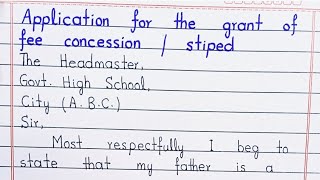 Application for the grant of
fee concession / stiped
The Headmaster,
Govt. High School,
City (A.B.C.)
Sir,
Most respectfully I beg to
state that my father is a